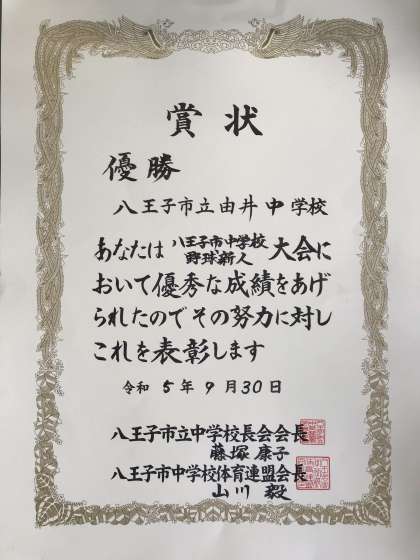 賞状
優勝
八王子市立由井中学校
あなたは八王子市中学校野球新人大会に
おいて優秀な成績をあげ
られたのでその努力に対し
これを表彰します
令和5年9月30日
八王子市立中学校長会会長
藤塚康子
八王子市中学校体育連盟会長
山川毅